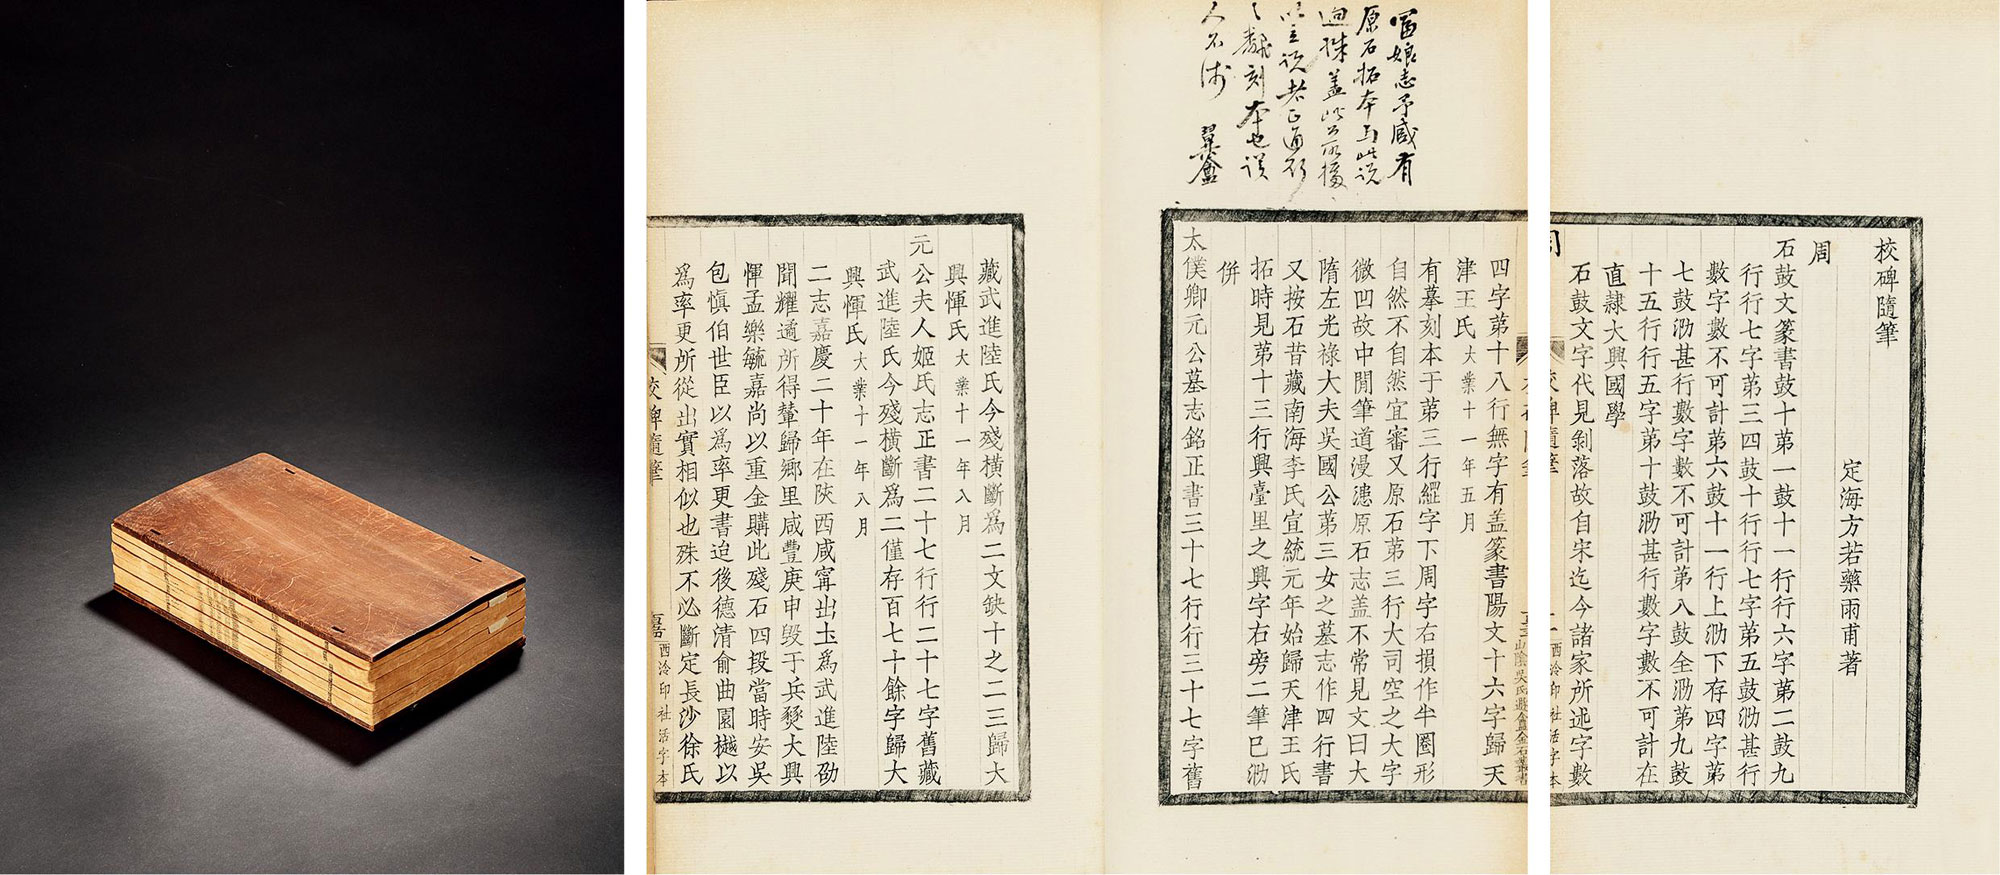 校碑隨筆
定海方若藥雨甫著
周
石鼓文篆書鼓十弟一鼓十一行行六字弟二鼓九
行行七字弟三四鼓十行行七字弟五鼓泐甚行
數字數不可計弟六鼓十一行上泐下存四字弟
七鼓泐甚行數字數不可計弟八鼓全泐弟九鼓
十五行行五字弟十鼓泐甚行數字數不可計在
直隸大興國學
石鼓文字代見剝落故自宋迄今諸家所述字數
校碑隨筆 一 西泠印社活字本
富娘志予臧有
原石拓本与此説
迥殊盖此公所據
以立説者正通行
之翻刻本也误
人不淺 翼盦
山陰吳氏遯盦金石叢書
四字弟十八行無字有盖篆書陽文十六字歸天
津王氏 大業十一年五月
有摹刻本于弟三行纙字下周字右損作半圈形
自然不自然宜審又原石弟三行大司空之大字
微凹故中閒筆道漫漶原石志盖不常見文曰大
隋左光祿大夫吳國公弟三女之墓志作四行書
又按石昔藏南海李氏宣統元年始歸天津王氏
拓時見弟十三行興臺里之興字右旁二筆已泐
併
太僕卿元公墓志銘正書三十七行行三十七字舊
藏武進陸氏今殘橫斷爲二文缺十之二三歸大
興惲氏 大業十一年八月
元公夫人姬氏志正書二十七行行二十七字舊藏
武進陸氏今殘橫斷爲二僅存百七十餘字歸大
興惲氏 大業十一年八月
二志嘉慶二十年在陝西咸甯出土爲武進陸劭
聞耀遹所得輦歸鄉里咸豐庚申毀于兵燹大興
惲孟樂毓嘉尚以重金購此殘石四段當時安吳
包愼伯世臣以爲率更書迨後德清俞曲園樾以
爲率更所從出實相似也殊不必斷定長沙徐氏
校碑隨筆 嘉 西泠印社活字本